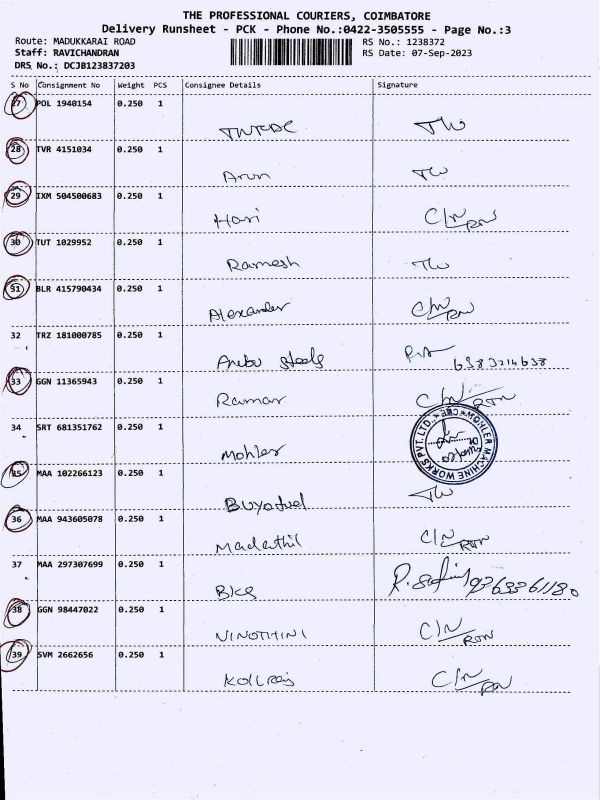 THE PROFESSIONAL COURIERS, COIMBATORE
Delivery Runsheet - PCK - Phone No.:0422-3505555 - Page No.:3
Route: MADUKKARAI ROAD RS No.: 1238372
Staff: RAVICHANDRAN RS Date: 07-Sep-2023
DRS No.: DCJB123837203
S No Consignment No Weight PCS Consignee Details Signature
27 POL 1940154 0.250 1
TW
28 TVR 4151034 0.250 1
Arun TW
29 IXM 504500683 0.250 1
Hari C/N
30 TUT 1029952 0.250 1
Ramesh TW
31 BLR 415790434 0.250 1
Alexander C/N
32 TRZ 181000785 0.250 1
steels
33 GGN 11365943 0.250 1
Raman C/N RTN
34 SRT 681351762 0.250 1
Mohler
MOHLER MACHINE WORKS PVT. LTD. CBE
35 MAA 102266123 0.250 1
TW
36 MAA 943605078 0.250 1
C/N RTN
37 MAA 297307699 0.250 1
38 GGN 98447022 0.250 1
VINOTHINI C/N RTN
39 SVM 2662656 0.250 1
C/N